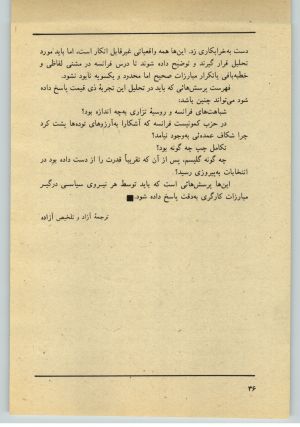 دست به‌خرابکاری زد. این‌ها همه واقعیاتی غیرقابل انکار است، اما باید مورد
تحلیل قرار گیرند و توضیح داده شوند تا درس فرانسه در مشتی لفاظی و
خطبه‌بافی یا تکرار مبارزات صحیح اما محدود و یکسویه نابود نشود.
فهرست پرسش‌هائی که باید در تحلیل این تجربهٔ ذی قیمت پاسخ داده
شود می‌تواند چنین باشد:
شباهت‌های فرانسه و روسیهٔ تزاری به‌چه اندازه بود؟
در حزب کمونیست فرانسه که آشکارا به‌آرزوهای توده‌ها پشت کرد
چرا شکاف عمده‌ئی به‌وجود نیامد؟
تکامل چپ چه گونه بود؟
چه گونه گلیسم، پس از آن که تقریباً قدرت را از دست داده بود در
انتخابات به‌پیروزی رسید؟
این‌ها پرسش‌هائی است که باید توسط هر نیروی سیاسی درگیر
مبارزات کارگری به‌دقت پاسخ داده شود.
ترجمهٔ آزاد و تلخیص آزاده
۳۶